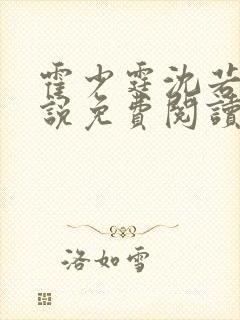 霍少霆沈若
說免費閱讀
洛如雪